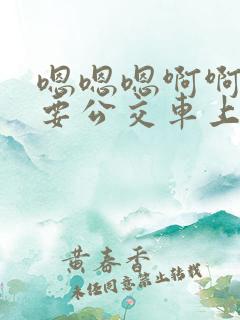 嗯嗯嗯啊啊
要公交車上
黄春香
未经同意禁止转载